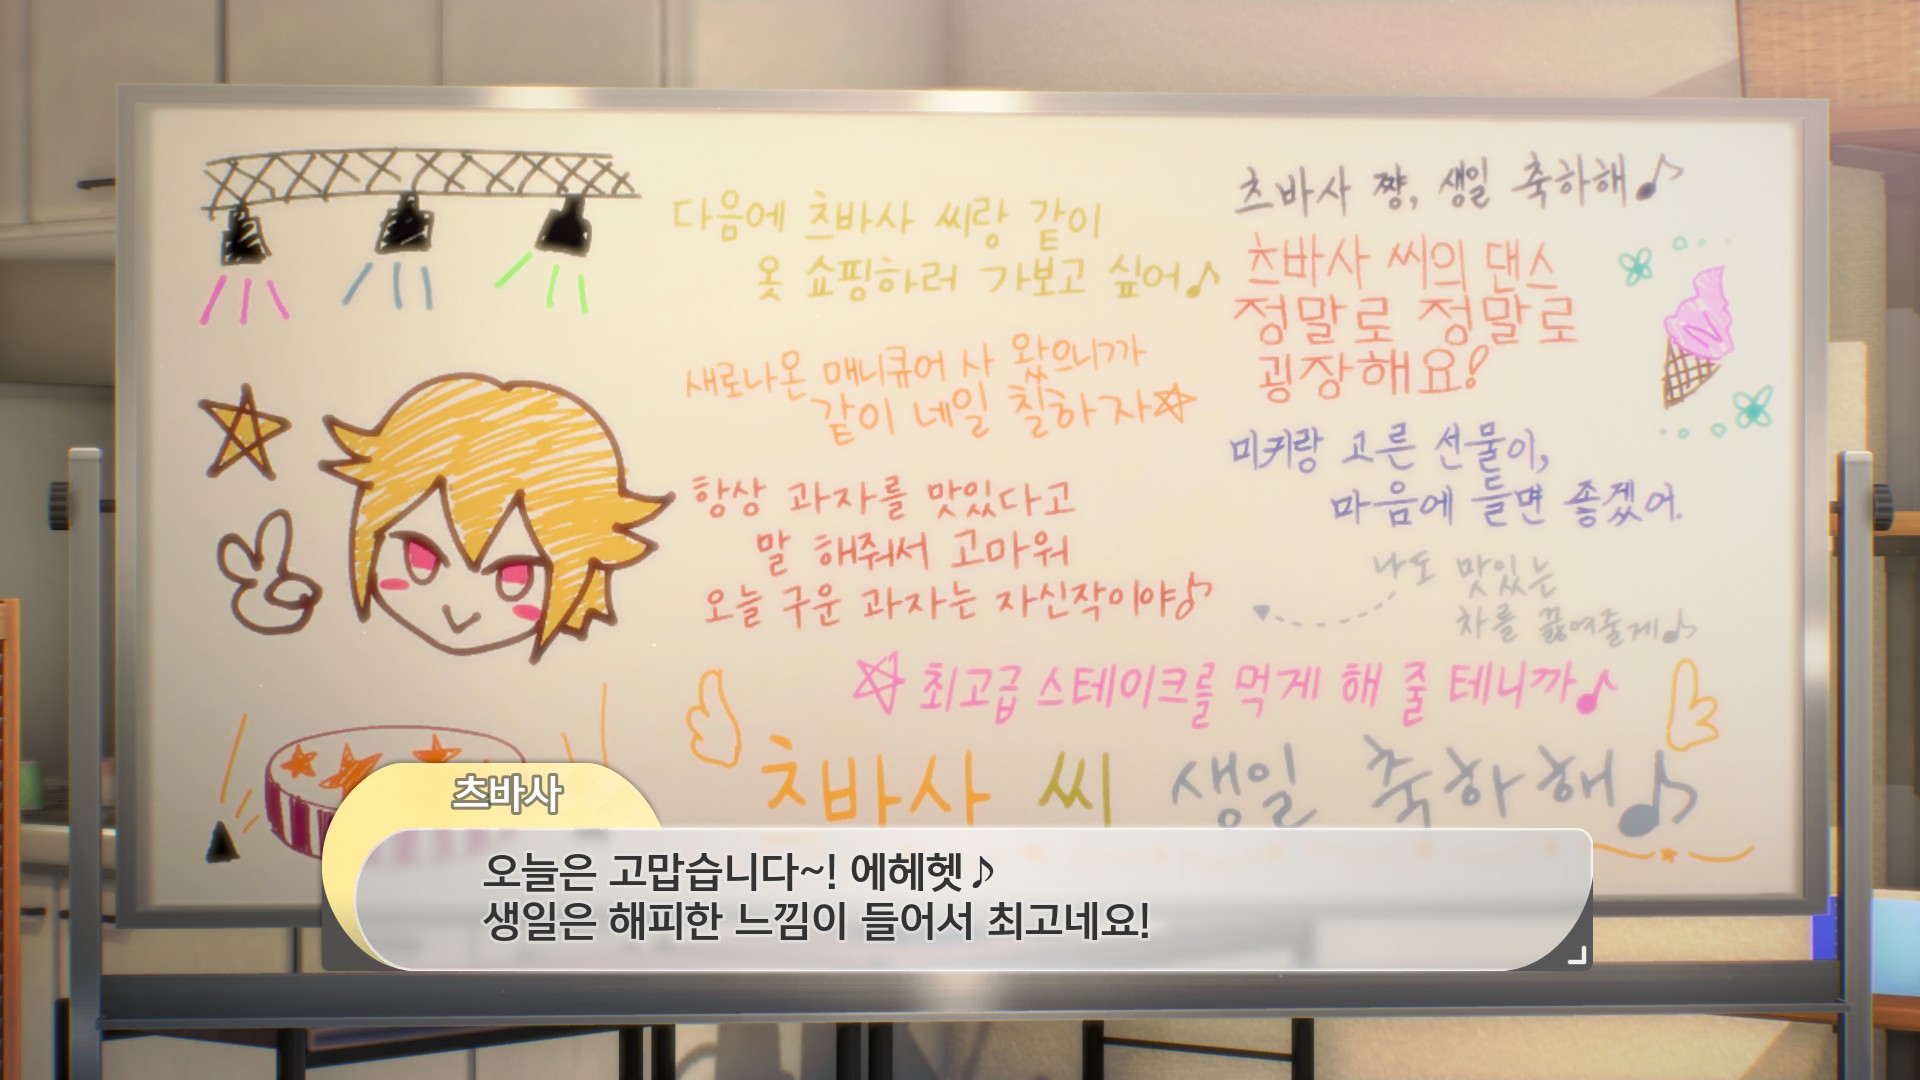 다음에 츠바사 씨랑 같이
옷 쇼핑하러 가보고 싶어♪
새로나온 매니큐어 사 왔으니까
같이 네일 칠하자☆
항상 과자를 맛있다고
말 해줘서 고마워
오늘 구운 과자는 자신작이야♪
츠바사 쨩, 생일 축하해♪
츠바사 씨의 댄스
정말로 정말로
굉장해요!
미키랑 고른 선물이,
마음에 들면 좋겠어.
나도 맛있는
차를 끓여줄게♪
☆최고급 스테이크를 먹게 해 줄 테니까♪
츠바사 씨 생일 축하해♪
츠바사
오늘은 고맙습니다~! 에헤헷♪
생일은 해피한 느낌이 들어서 최고네요!